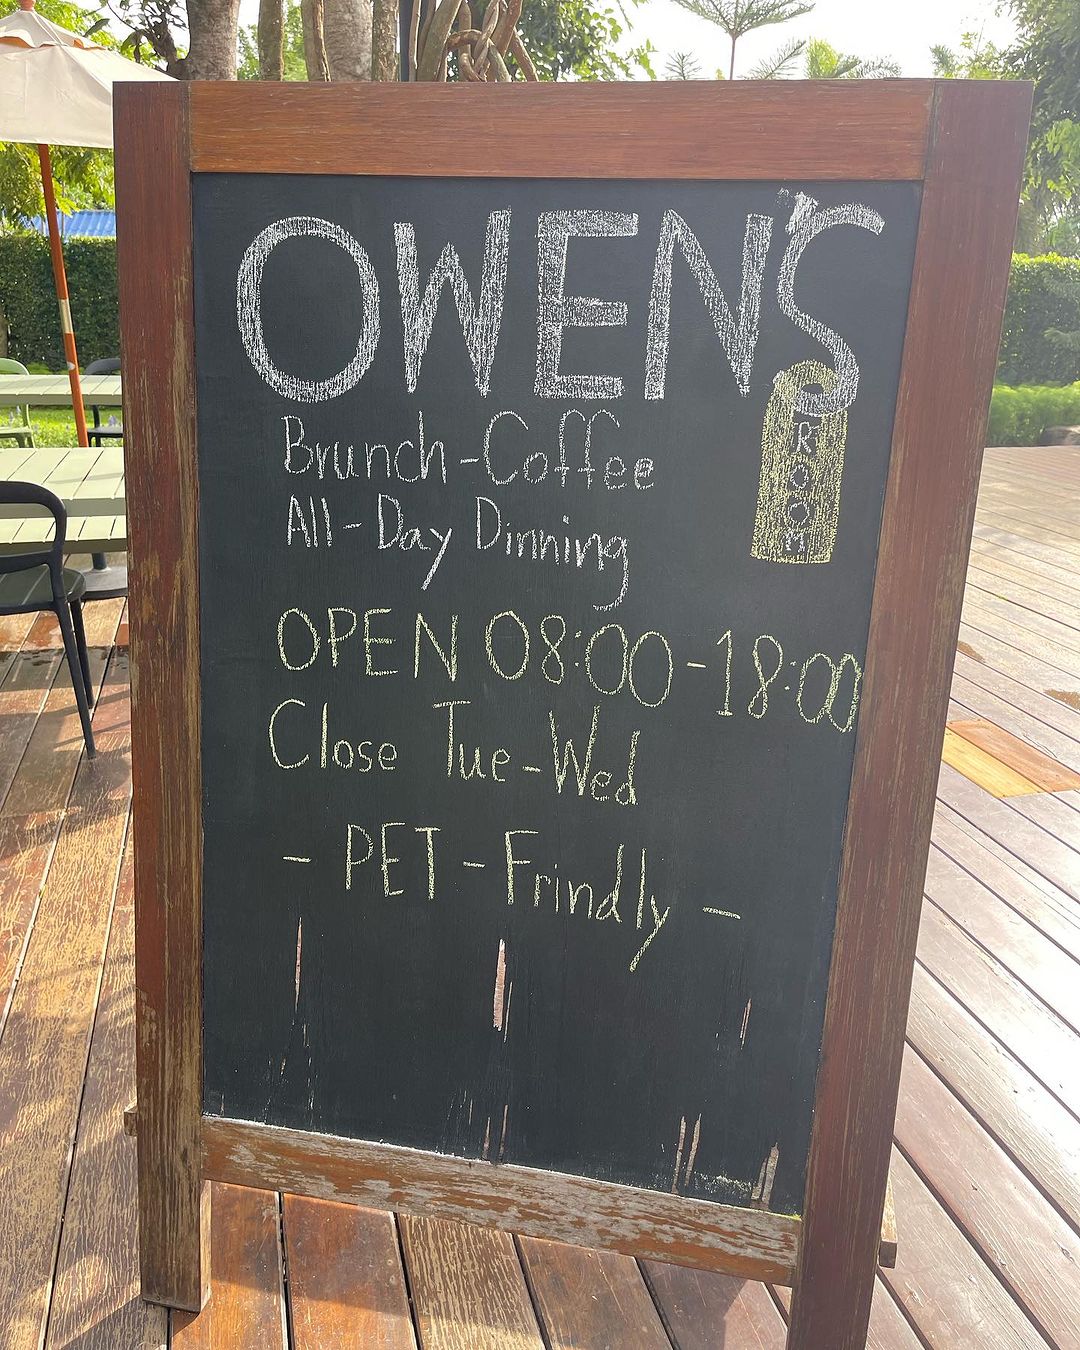 OWEN'S
ROOM
Brunch-Coffee
All-Day Dinning
OPEN 08:00-18:00
Close Tue-Wed
- PET-Frindly -